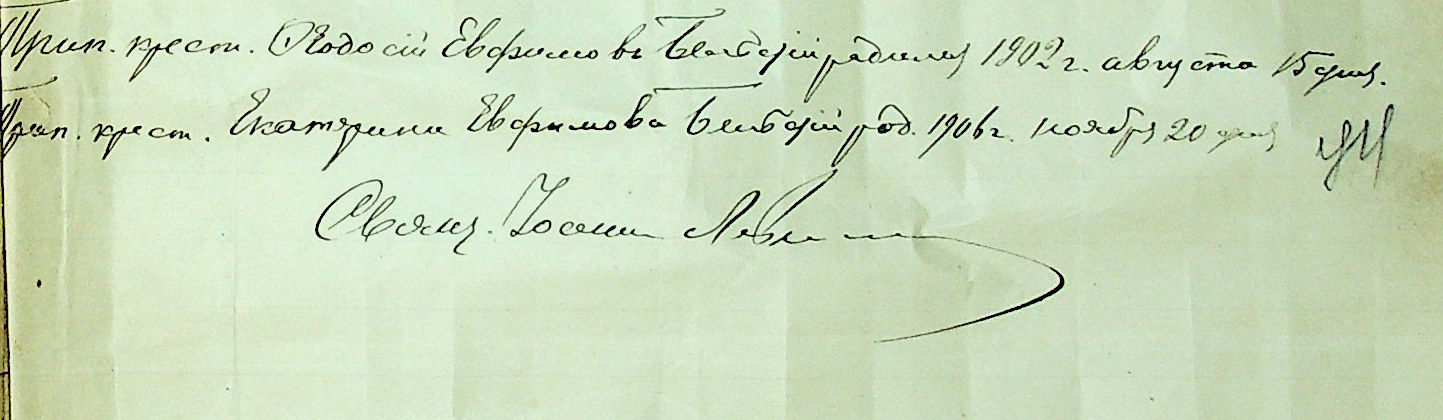 Прип. крест. Ѳеодосій Евфимовъ родился 1902 г. августа 15 дня.
Прип. крест. Екатерина Евфимова род. 1906 г. ноября 20 дня
Свящ. Іоаннъ